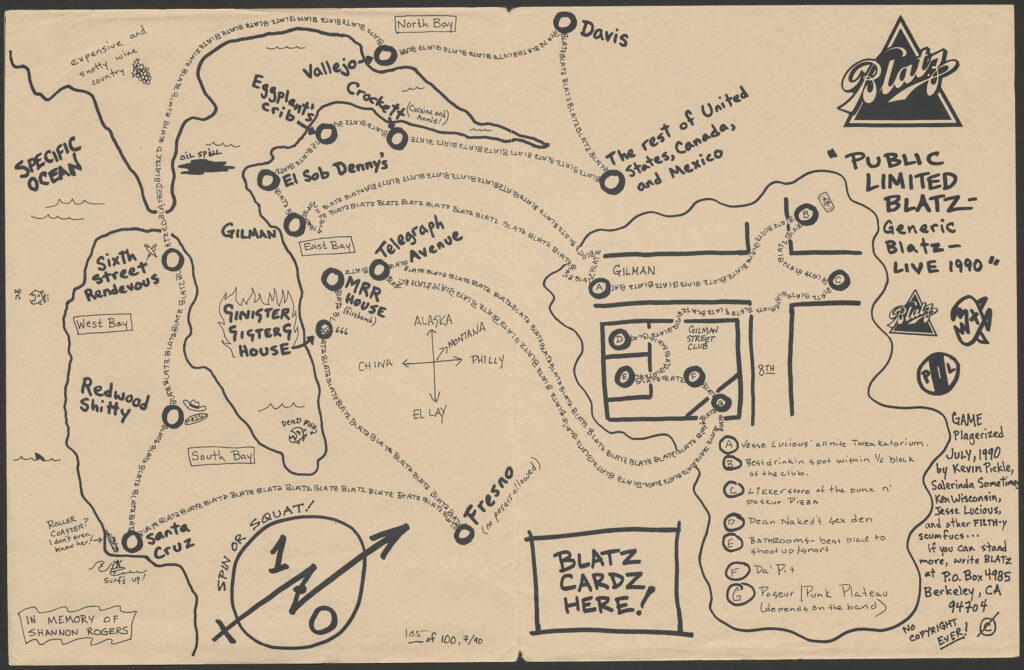 North Bay
Davis
expensive and
snotty wine
country
Vallejo
Blatz
Eggplant's
crib
Crockett
(Cocaine and
Annie!)
SPECIFIC
OCEAN
oil spill
The rest of United
States, Canada,
and Mexico
El Sob Denny's
"PUBLIC
LIMITED
BLATZ-
Generic
Blatz-
LIVE 1990"
GILMAN
East Bay
Telegraph
Avenue
Sixth
Street
Rendevous
MRR
HOUSE
(firebomb)
666
GILMAN
A
B
C
West Bay
GINISTER
GIGTERG
HOUSE
ALASKA
MONTANA
CHINA
PHILLY
EL LAY
D
GILMAN
STREET
CLUB
E
F
G
8TH
Blatz
PIL
Redwood
Shitty
Dead Fish
South Bay
Fresno
(no posers allowed)
ROLLER
COASTER?
I don't even
know her!
Santa
Cruz
Surf's up!
SPIN OR SQUAT!
1
0
BLATZ
CARDZ
HERE!
A Jesse Lucious' allnite Tweakatorium.
B Best drinkin spot within 1/2 block
of the club.
C Likker store of the punx n'
poseur Pizza
D Dean Naked's sex den
E BATHROOMS- best place to
shoot up/snort
F Da' Pit
G Poseur/Punk Plateau
(depends on the band)
GAME
Plagerized
JULY, 1990
by Kevin Pickle,
Salerinda Sometime,
Ken Wisconsin,
Jesse Lucious,
and other FILTH-y
scumfucs...
If you can stand
more, write BLATZ
at P.O. Box 4985
Berkeley, CA
94704
NO
COPYRIGHT
EVER!
IN MEMORY OF
SHANNON ROGERS
105 of 100, 7/90